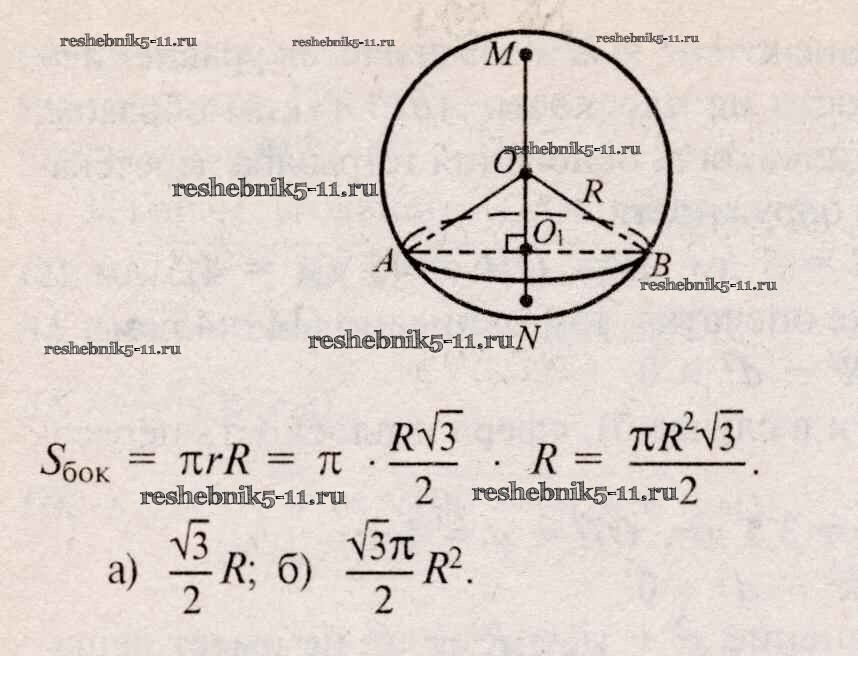 reshebnik5-11.ru reshebnik5-11.ru reshebnik5-11.ru
M
reshebnik5-11.ru
O
reshebnik5-11.ru R
O₁
A B
reshebnik5-11.ru
reshebnik5-11.ru reshebnik5-11.ru N
Sбок = πrR = π · R√3/2 · R = πR²√3/2.
reshebnik5-11.ru reshebnik5-11.ru
а) √3/2 R; б) √3π/2 R².